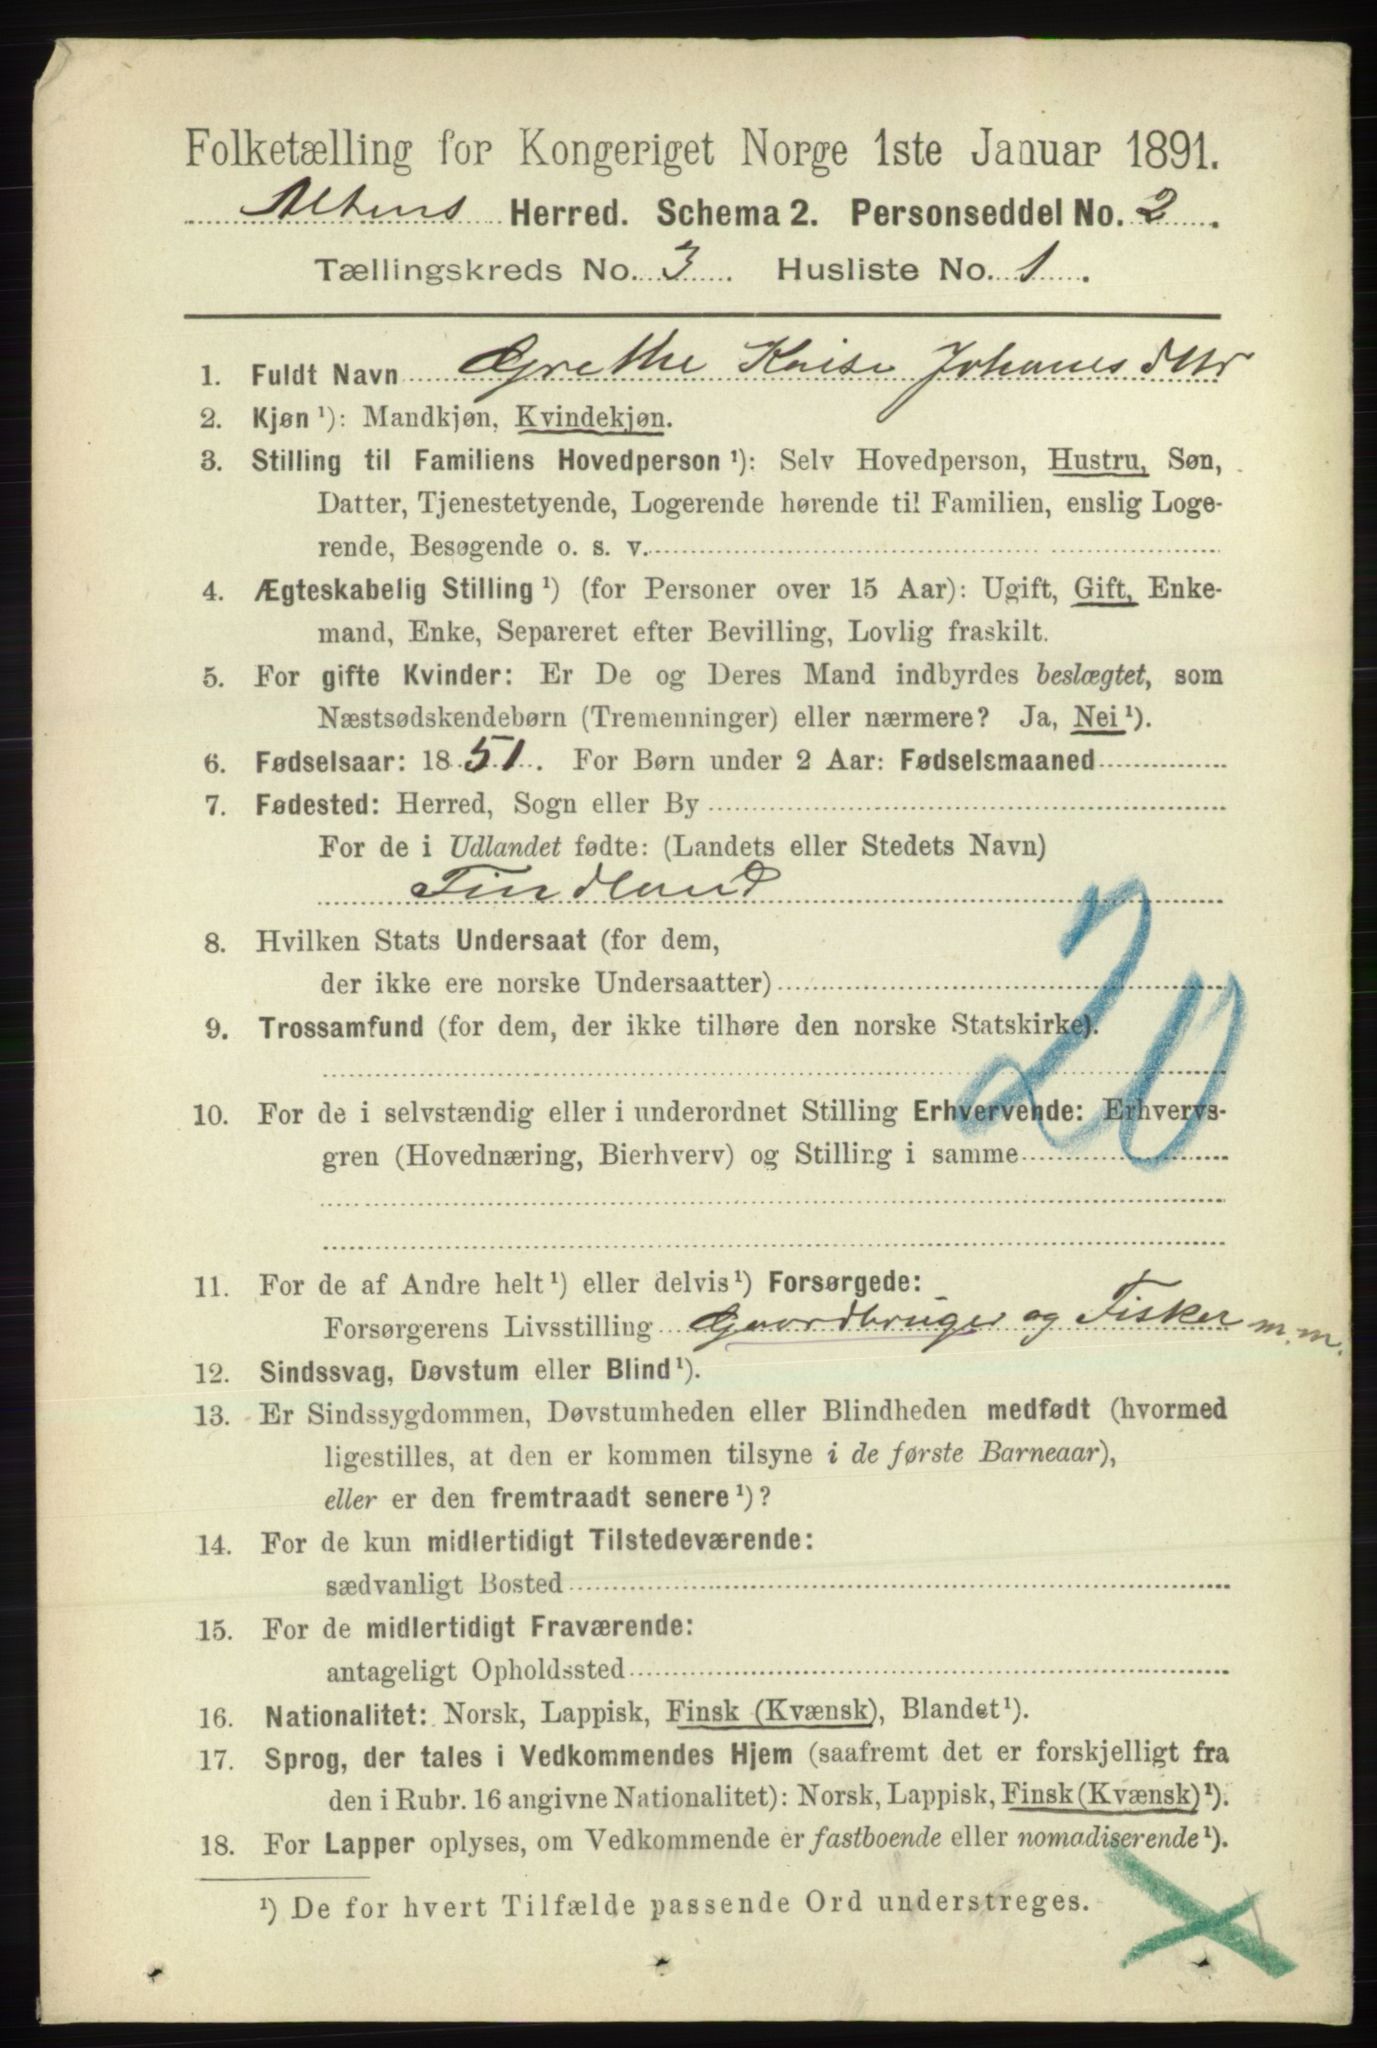 Folketælling for Kongeriget Norge 1ste Januar 1891.
Altens Herred. Schema 2. Personseddel No. 2.
Tællingskreds No. 3. Husliste No. 1.
1. Fuldt Navn Grethe Kaise Johanesdttr
2. Kjøn ¹): Mandkjøn, Kvindekjøn.
3. Stilling til Familiens Hovedperson ¹): Selv Hovedperson, Hustru, Søn,
Datter, Tjenestetyende, Logerende hørende til Familien, enslig Loge-
rende, Besøgende o. s. v.
4. Ægteskabelig Stilling ¹) (for Personer over 15 Aar): Ugift, Gift, Enke-
mand, Enke, Separeret efter Bevilling, Lovlig fraskilt.
5. For gifte Kvinder: Er De og Deres Mand indbyrdes beslægtet, som
Næstsødskendebørn (Tremenninger) eller nærmere? Ja, Nei ¹).
6. Fødselsaar: 1851. For Børn under 2 Aar: Fødselsmaaned
7. Fødested: Herred, Sogn eller By
For de i Udlandet fødte: (Landets eller Stedets Navn)
Findland
8. Hvilken Stats Undersaat (for dem,
der ikke ere norske Undersaatter)
20
9. Trossamfund (for dem, der ikke tilhøre den norske Statskirke).
10. For de i selvstændig eller i underordnet Stilling Erhvervende: Erhvervs-
gren (Hovednæring, Bierhverv) og Stilling i samme
11. For de af Andre helt ¹) eller delvis ¹) Forsørgede:
Forsørgerens Livsstilling Gaardbruger og Fisker m. m.
12. Sindssvag, Døvstum eller Blind ¹).
13. Er Sindssygdommen, Døvstumheden eller Blindheden medfødt (hvormed
ligestilles, at den er kommen tilsyne i de første Barneaar),
eller er den fremtraadt senere ¹)?
14. For de kun midlertidigt Tilstedeværende:
sædvanligt Bosted
15. For de midlertidigt Fraværende:
antageligt Opholdssted
16. Nationalitet: Norsk, Lappisk, Finsk (Kvænsk), Blandet ¹).
17. Sprog, der tales i Vedkommendes Hjem (saafremt det er forskjelligt fra
den i Rubr. 16 angivne Nationalitet): Norsk, Lappisk, Finsk (Kvænsk) ¹).
18. For Lapper oplyses, om Vedkommende er fastboende eller nomadiserende ¹).
¹) De for hvert Tilfælde passende Ord understreges.